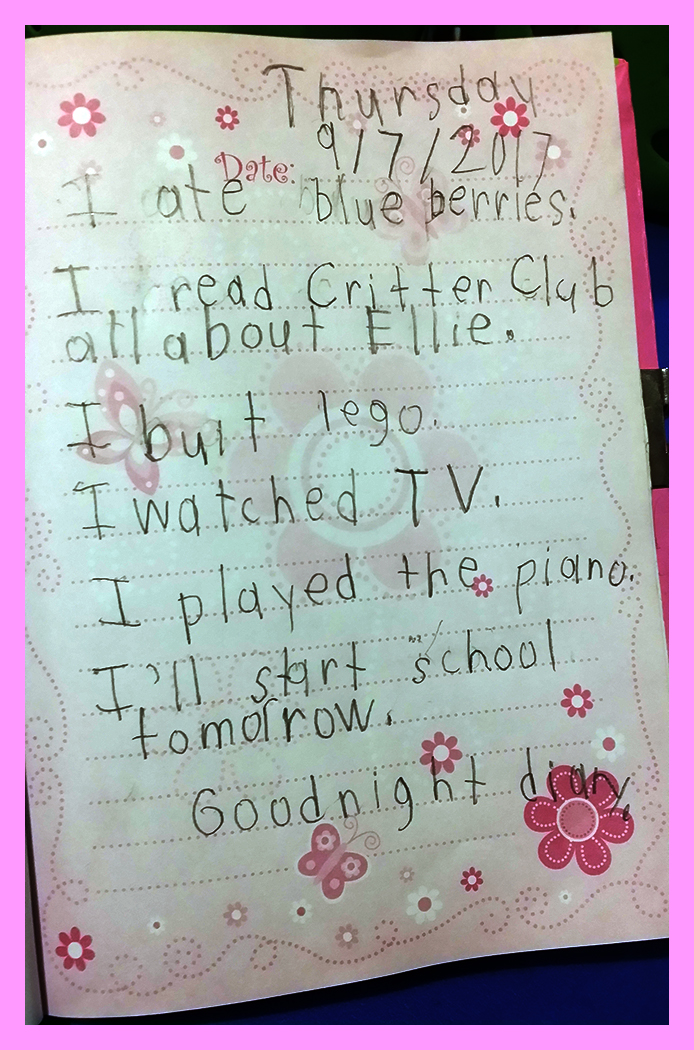 Thursday
Date: 9/7/2017
I ate blue berries.
I read Critter Club
all about Ellie.
I buit lego.
I watched TV.
I played the piano.
I'll start school
tomorrow.
Goodnight diary.